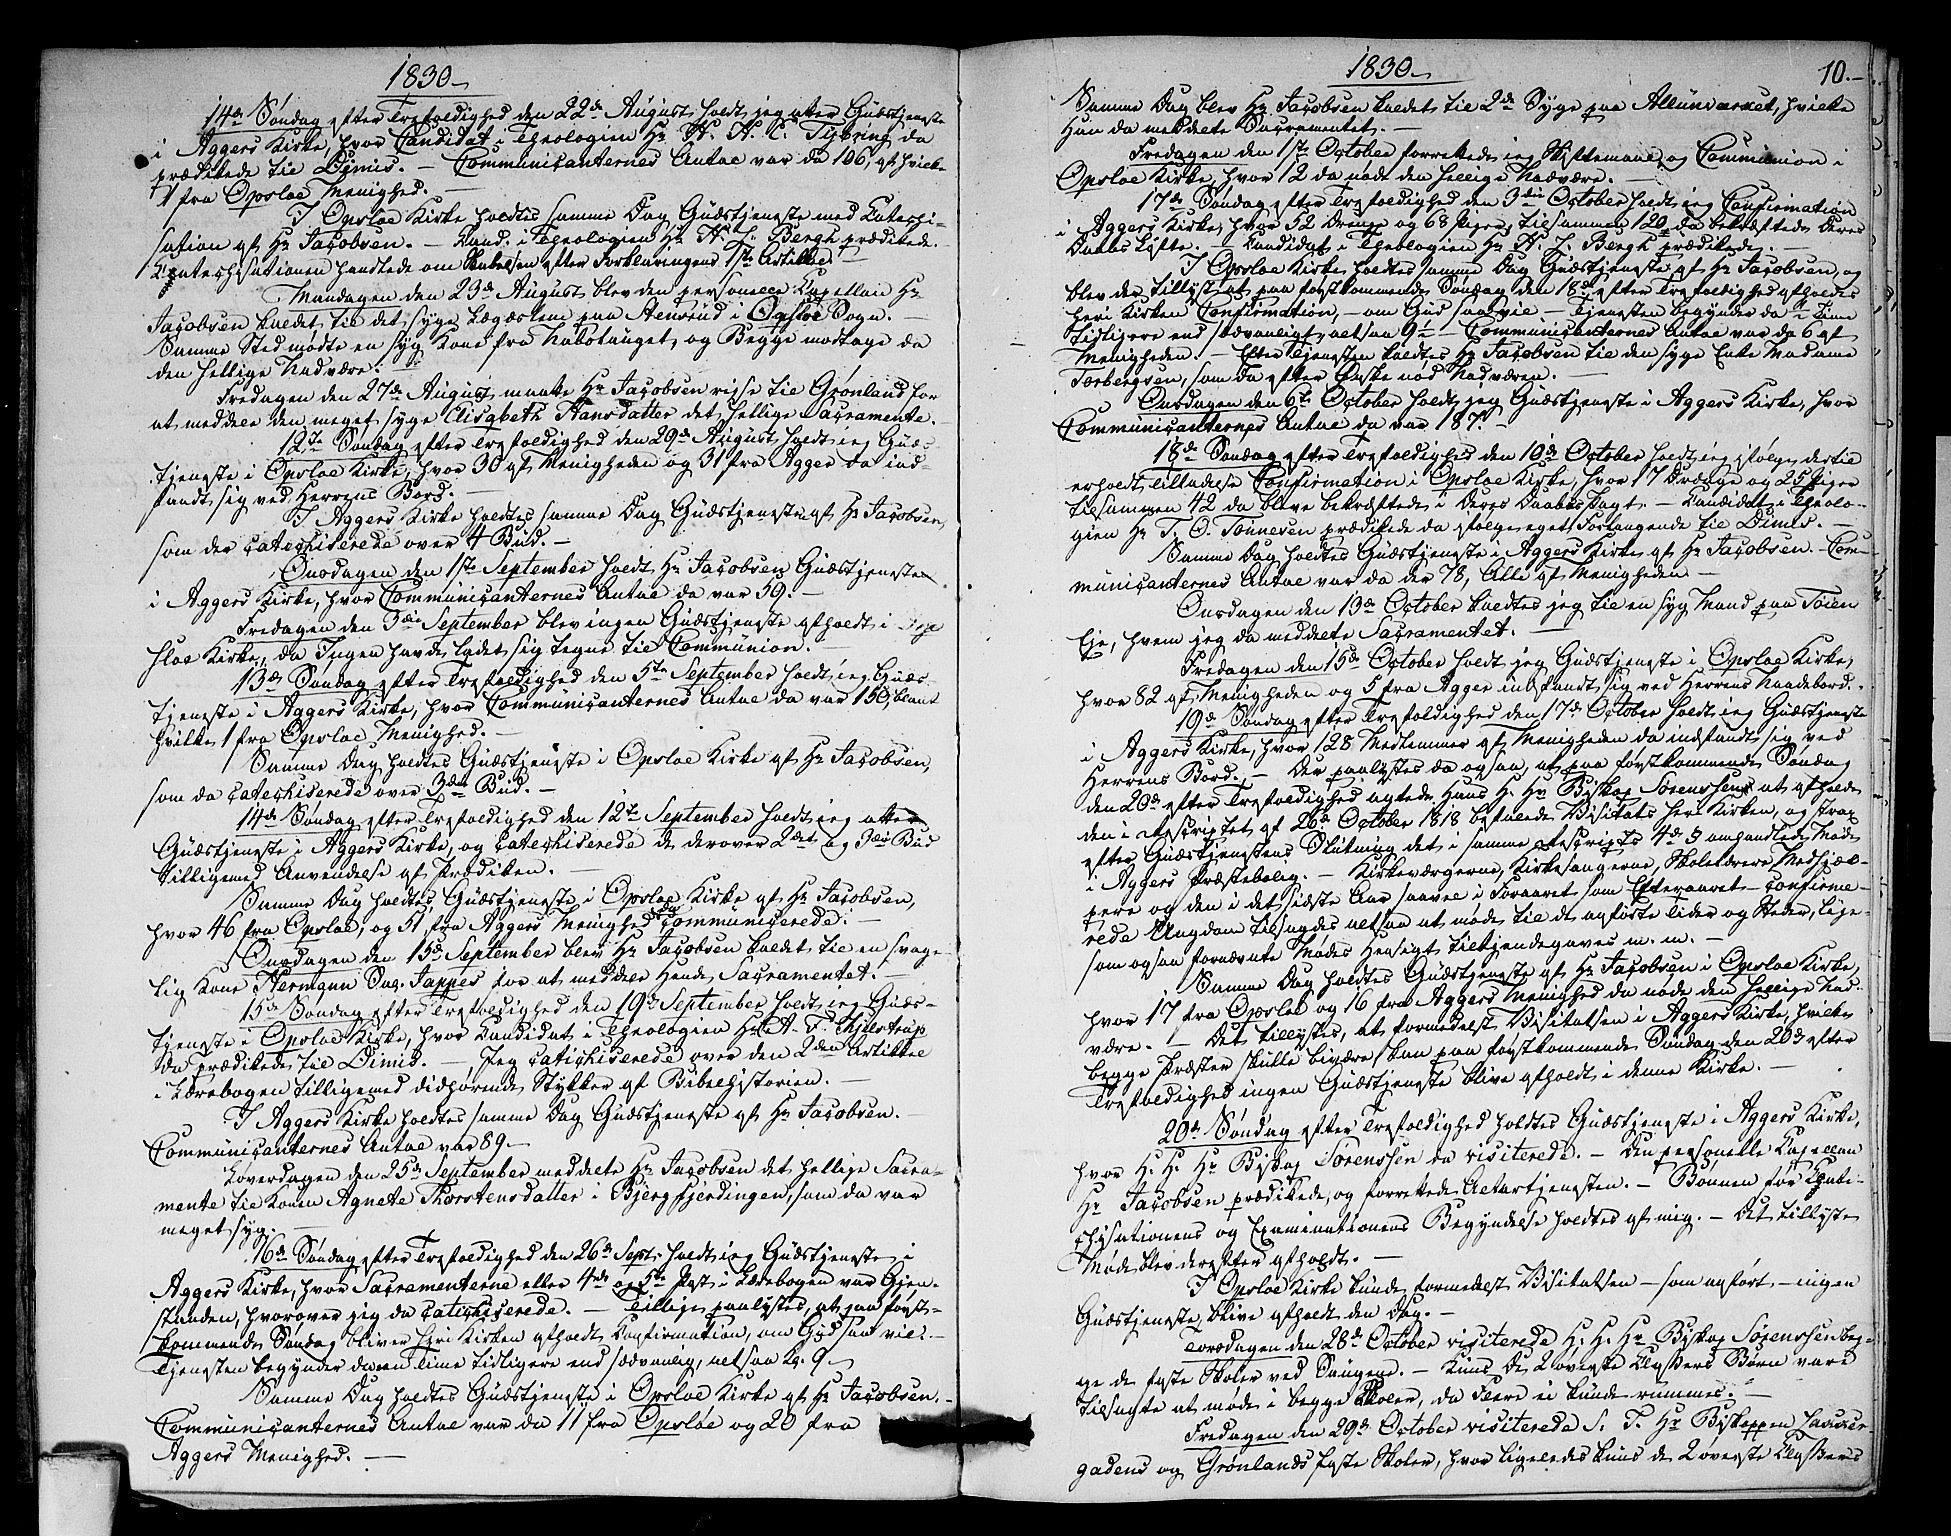 1830
14de Søndag efter Trefoldighed den 22de August holdt jeg atter Gudstjeneste
i Aggers Kirke, hvor Candidat i Theologien Hr. H. H. C. da
prædikede til Dimis. — Communicanternes Antal var da 106, af hvilke
1 fra Opsloe Menighed. —
I Opsloe Kirke holdtes samme Dag Gudstjeneste med Catechi-
sation af Hr Jacobsen. — Kand. i Theologien Hr H. J. Bergh prædikede.
Catechisationen handlede om Skabelsen efter Forklaringens 1ste Artikkel
Mandagen den 23de August blev den personelle Capellan Hr
Jacobsen kaldet til det syge paa i Opsloe Sogn. —
Samme Sted mødte en syg Kone fra og Begge modtage da
den hellige Nadvere. —
Fredagen den 27de August maatte Hr Jacobsen reise til Grønland for
at meddele den meget syge Elisabeth Hansdatter det hellige Sacramente. —
12te Søndag efter Trefoldighed den 29de August holdt jeg Guds-
tjeneste i Opsloe Kirke, hvor 30 af Menigheden og 31 fra Agger da ind-
fandt sig ved Herrens Bord. —
I Aggers Kirke holdtes samme Dag Gudstjeneste af Hr Jacobsen,
som der catechiserede over 4 Bud. —
Onsdagen den 1ste September holdt Hr Jacobsen Gudstjeneste
i Aggers Kirke, hvor Communicanternes Antal da var 59. —
Fredagen den 3die September blev ingen Gudstjeneste afholdt i Op
sloe Kirke, da Ingen havde ladet sig tegne til Communion. —
13de Søndag efter Trefoldighed den 5te September holdt jeg Guds-
tjeneste i Aggers Kirke, hvor Communicanternes Antal da var 150, blant
hvilke 1 fra Opsloe Menighed. —
Samme Dag holdtes Gudstjeneste i Opsloe Kirke af Hr Jacobsen,
som da catechiserede over 3die Bud. —
14de Søndag efter Trefoldighed den 12te September holdt jeg atter
Gudstjeneste i Aggers Kirke, og catechiserede der over 2det og 3die Bud
tilligemed Anvendelse af Prædiken. —
Samme Dag holdtes Gudstjeneste i Opsloe Kirke af Hr Jacobsen,
hvor 46 fra Opsloe, og 51 fra Aggers Menighed da communicerede. —
Onsdagen den 15de September blev Hr Jacobsen kaldet til en svage-
lig Kone Hermgun Sag. Jappes for at meddele hende Sacramentet. —
15de Søndag efter Trefoldighed den 19de September holdt jeg Guds-
tjeneste i Opsloe Kirke, hvor Kandidat i Theologien Hr A. F. Kjelstrup
da prædikede til Dimis. — Jeg catechiserede over den 2den Artikkel
i Lærebogen tilligemed didhørende Stykker af Bibelhistorien. —
I Aggers Kirke holdtes samme Dag Gudstjeneste af Hr Jacobsen. —
Communicanternes Antal var 89 —
Løverdagen den 25de September meddelte Hr Jacobsen det hellige Sacra-
mente til Konen Agnete Thorstensdatter i Bjergfjerdingen, som da var
meget syg. —
16de Søndag efter Trefoldighed den 26de Septr holdt jeg Gudstjeneste i
Aggers Kirke, hvor Sacramenterne eller 4de og 5te Part i Lærebogen var Gjen-
standen, hvorover jeg da catechiserede. — Tillige paalystes, at paa først-
kommende Søndag bliver her i Kirken afholdt Confirmation, om Gud saa vil. —
Tjenesten begynder da en Time tidligere end sædvanlig, altsaa Kl. 9 —
Samme Dag holdtes Gudstjeneste i Opsloe Kirke af Hr Jacobsen. —
Communicanternes Antal var da 11 fra Opsloe og 20 fra
Aggers Menighed. —
1830
10. —
Samme Dag blev Hr Jacobsen kaldet til 2de Syge paa Allunværket, hvilke
Han da meddelte Sacramentet. —
Fredagen den 1ste October forrettede jeg Skriftemaal og Communion i
Opsloe Kirke, hvor 12 da nøde den hellige Nadvere. —
17de Søndag efter Trefoldighed den 3die October holdt jeg Confirmation
i Aggers Kirke, hvor 52 Drenge og 68 Piger, tilsammen 120 da bekræftede deres
Daabs Løfte. — Kandidat i Theologien Hr H. J. Bergh prædikede. —
I Opsloe Kirke holdtes samme Dag Gudstjeneste af Hr Jacobsen, og
blev der tillyst at paa førstkommende Søndag den 18de efter Trefoldighed afholdes
her i Kirken Confirmation, — om Gud saa vil — Tjenesten begynder da 1 Time
tidligere end sædvanligt, altsaa 9. — Communicanternes Antal var da 6 af
Menigheden. — Efter Tjenesten kaldtes Hr Jacobsen til den syge Enke Madame
Torbergsen, som da efter Ønske nød Nadveren. —
Onsdagen den 6te October holdt jeg Gudstjeneste i Aggers Kirke, hvor
Communicanternes Antal da var 187. —
18de Søndag efter Trefoldighed den 10de October holdt jeg ifølge dertil
erholdt Tilladelse Confirmation i Opsloe Kirke, hvor 17 Drenge og 25 Piger
tilsammen 42 da bleve bekræftede i deres Daabs Pagt. — Kandidat i Theolo-
gien Hr T. O. Tønnesen prædikede da efter eget Forlangende til Dimis. —
Samme Dag holdtes Gudstjeneste i Aggers Kirke af Hr Jacobsen. — Com-
municanternes Antal var da der 78, Alle af Menigheden —
Onsdagen den 13de October kaldtes jeg til en syg Mand paa Tøien
Eje, hvem jeg da meddelte Sacramentet. —
Fredagen den 15de October holdt jeg Gudstjeneste i Opsloe Kirke,
hvor 82 af Menigheden og 5 fra Agger indfandt sig ved Herrens Naadebord. —
19de Søndag efter Trefoldighed den 17de October holdt jeg Gudstjeneste
i Aggers Kirke, hvor 128 Medlemmer af Menigheden da indfandt sig ved
Herrens Bord. — Der paalystes da ogsaa, at paa førstkommende Søndag
den 20de efter Trefoldighed agtede Hans H. Hr Biskop Sørenssen at afholde
den i Rescriptet af 26de October 1818 befalede Visitats her i Kirken, og strax
efter Gudstjenestens Slutning det i samme Rescripts 4de § omhandlede Møde
i Aggers Præstebolig. — Kirkeværgerne, Kirkesangerne, Skolelærere, Medhjæl-
pere og den i det sidste Aar saavel i Foraaret som Efteraaret confirme-
rede Ungdom tilsagdes altsaa at møde til de anførte Tider og Steder, lige-
som ogsaa fornævnte Mødes Hensigt tilkjendegaves m. m. —
Samme Dag holdtes Gudstjeneste af Hr Jacobsen i Opsloe Kirke,
hvor 17 fra Opsloe og 16 fra Aggers Menighed da nøde den hellige Nad-
vere. — Det tillystes, at formedelst Visitatsen i Aggers Kirke, hvilke
begge Præster skulle bivære, kan paa førstkommende Søndag den 20de efter
Trefoldighed ingen Gudstjeneste blive afholdt i denne Kirke. —
20de Søndag efter Trefoldighed holdtes Gudstjeneste i Aggers Kirke,
hvor H. H. Hr Biskop Sørenssen da visiterede. — Den personelle Capellan
Hr Jacobsen prædikede, og forrettede Altertjenesten. — Bønnen før Cate-
chisationens og Examinationens Begyndelse holdtes af mig. — Det tillyste
Møde blev derefter afholdt. —
I Opsloe Kirke kunde formedelst Visitatsen — som anført — ingen
Gudstjeneste blive afholdt den Dag. —
Torsdagen den 28de October visiterede H. H. Hr Biskop Sørenssen beg-
ge de faste Skoler ved Sangene. — Kuns de 2 øverste Classers Børn vare
tilsagte at møde i begge Skoler, da Flere ei kunde rummes. —
Fredagen den 29de October visiterede S. T. Hr Biskoppen
gadens og Grønlands faste Skoler, hvor ligeledes kuns de 2 øverste Classers